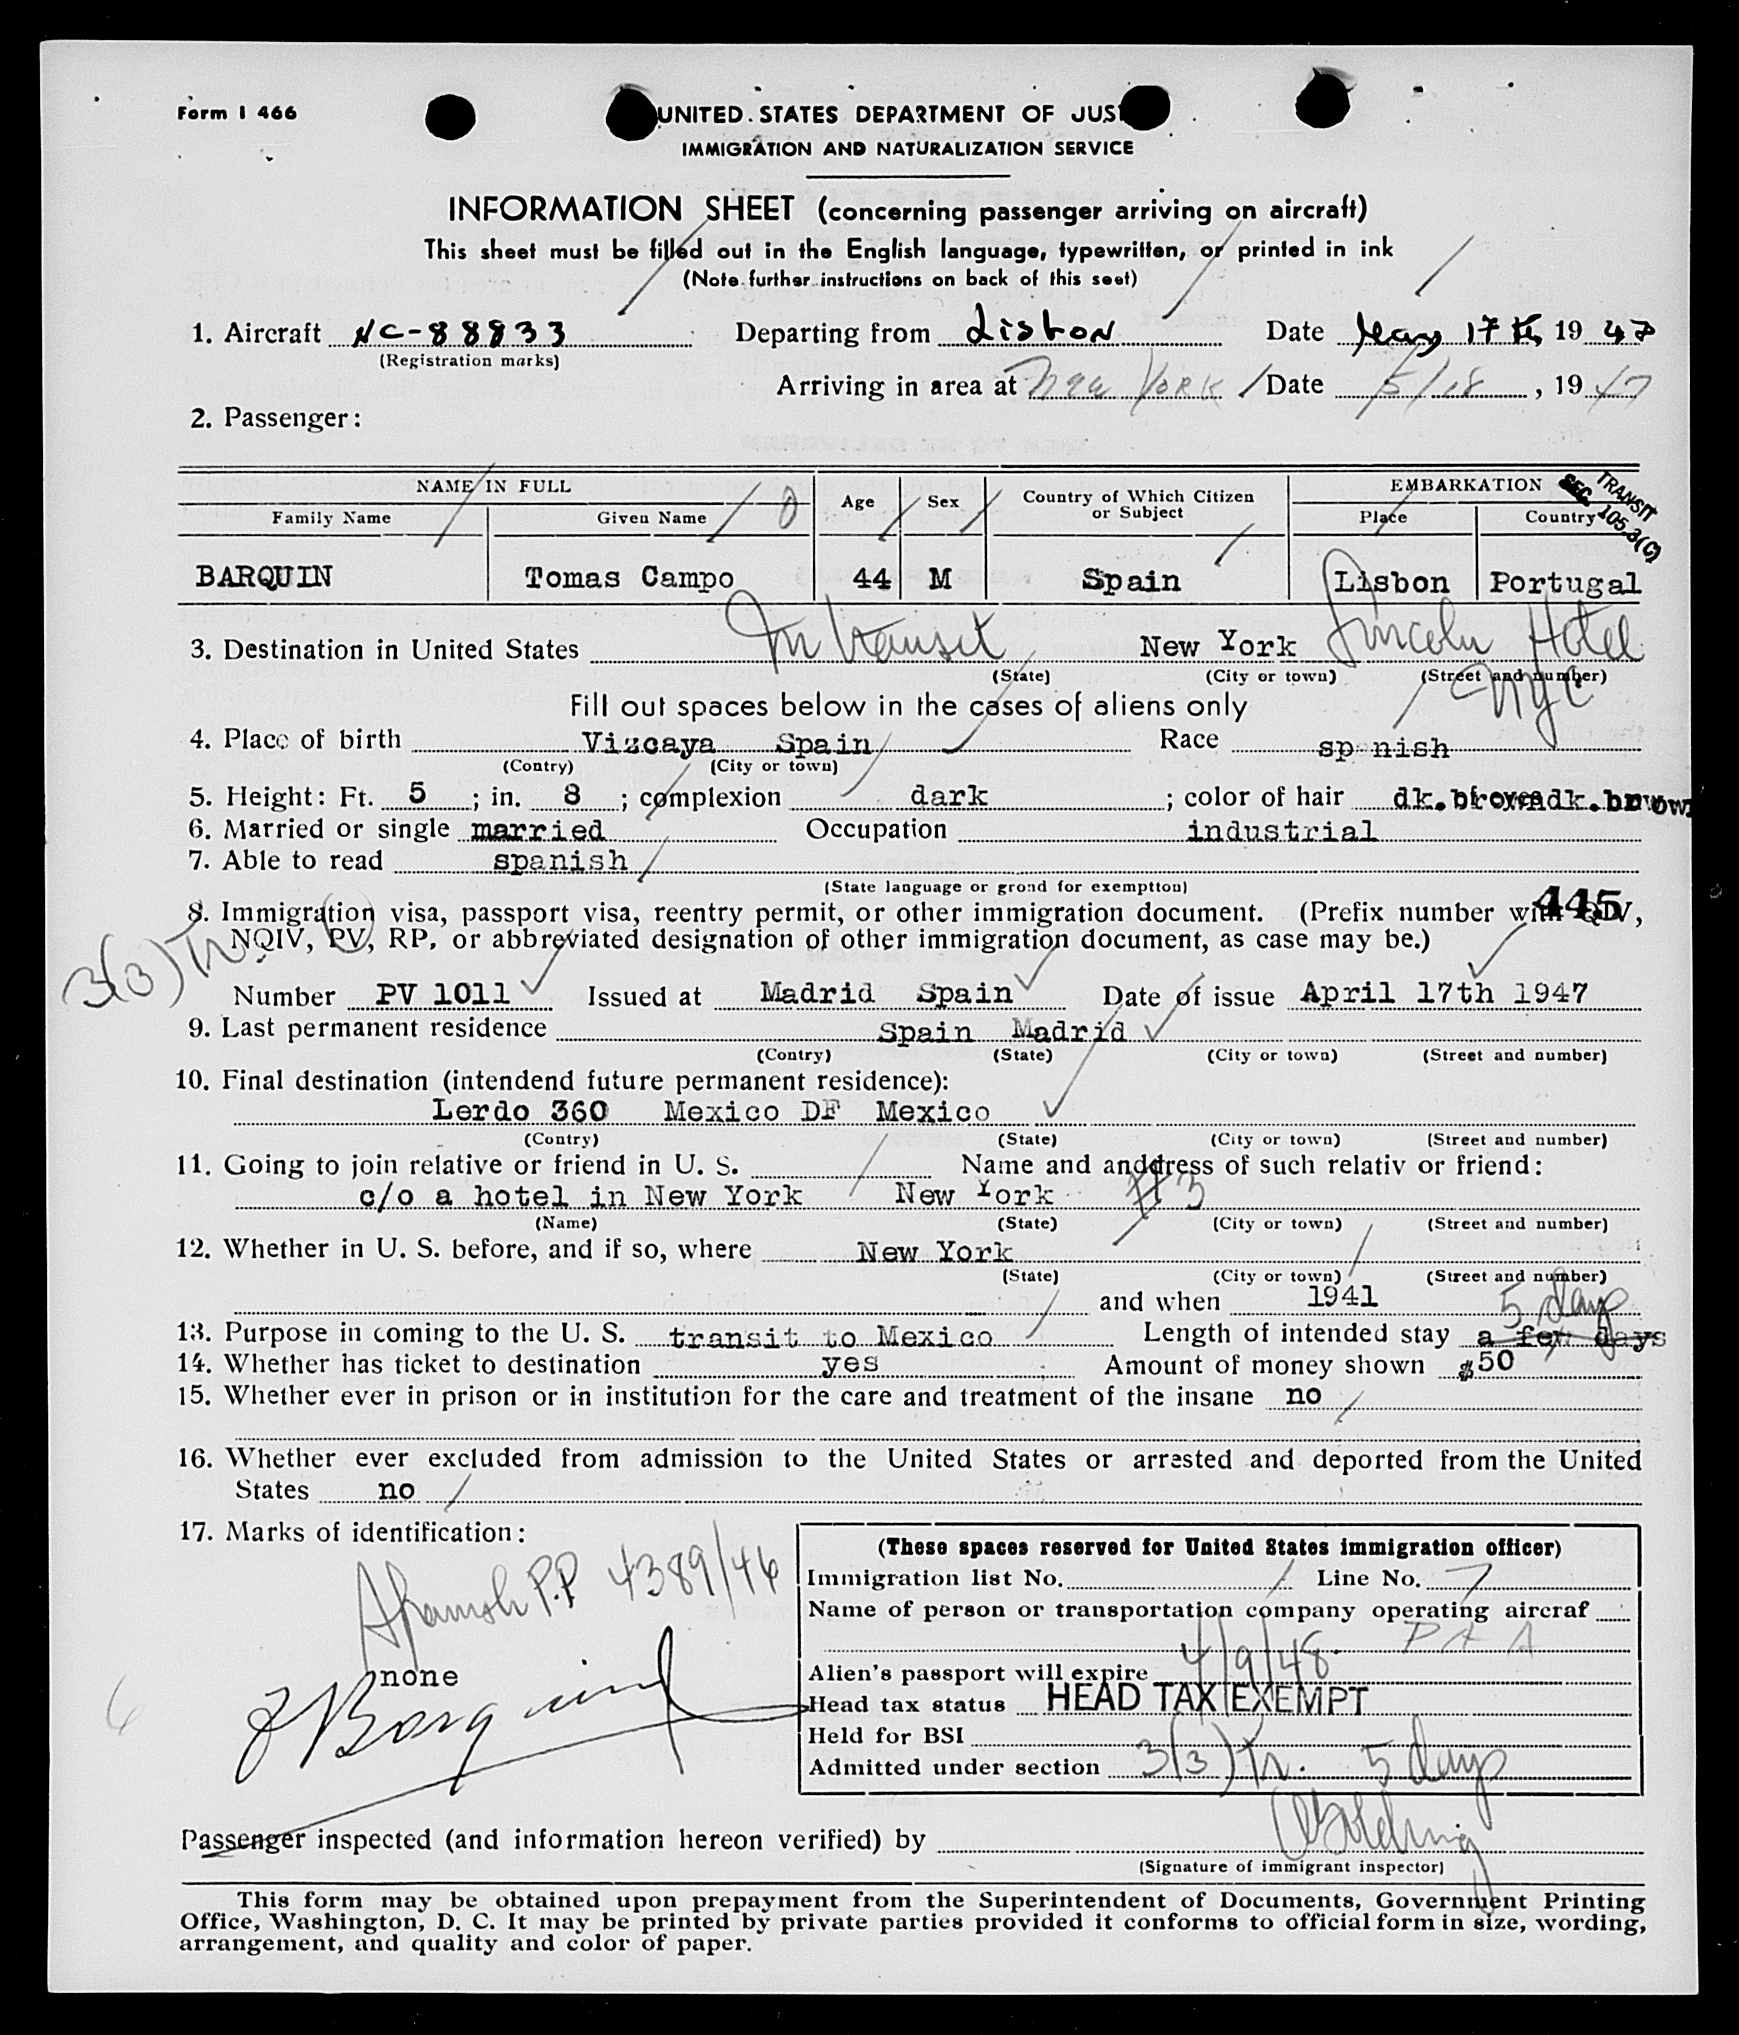 Form I 466
UNITED STATES DEPARTMENT OF JUS
IMMIGRATION AND NATURALIZATION SERVICE
INFORMATION SHEET (concerning passenger arriving on aircraft)
This sheet must be filled out in the English language, typewritten, or printed in ink
(Note further instructions on back of this seet)
1. Aircraft NC-88833 Departing from Lisbon Date May 17th, 1947
(Registration marks)
Arriving in area at New York Date 5/18, 1947
2. Passenger:
NAME IN FULL Age Sex Country of Which Citizen or Subject EMBARKATION
SEC. TRANSIT 105.3(C)
Family Name Given Name Place Country
BARQUIN Tomas Campo 44 M Spain Lisbon Portugal
3. Destination in United States In transit New York Lincoln Hotel
(State) (City or town) (Street and number)
NYC
Fill out spaces below in the cases of aliens only
4. Place of birth Vizcaya Spain Race sp nish
(Contry) (City or town)
5. Height: Ft. 5; in. 8; complexion dark; color of hair dk. brown dk. brown
6. Married or single married Occupation industrial
7. Able to read spanish
(State language or grond for exemption)
445
8. Immigration visa, passport visa, reentry permit, or other immigration document. (Prefix number with QIV,
3(3) Tr NQIV, PV, RP, or abbreviated designation of other immigration document, as case may be.)
Number PV 1011 Issued at Madrid Spain Date of issue April 17th 1947
9. Last permanent residence Spain Madrid
(Contry) (State) (City or town) (Street and number)
10. Final destination (intendend future permanent residence):
Lerdo 360 Mexico DF Mexico
(Contry) (State) (City or town) (Street and number)
11. Going to join relative or friend in U. S. Name and anddress of such relativ or friend:
c/o a hotel in New York New York #3
(Name) (State) (City or town) (Street and number)
12. Whether in U. S. before, and if so, where New York
(State) (City or town) (Street and number)
and when 1941 5 days
13. Purpose in coming to the U. S. transit to Mexico Length of intended stay a few days
14. Whether has ticket to destination yes; Amount of money shown $50
15. Whether ever in prison or in institution for the care and treatment of the insane no
16. Whether ever excluded from admission to the United States or arrested and deported from the United
States no
17. Marks of identification:
Spanish P.P 4389/46
none
T Barquin
6
(These spaces reserved for United States immigration officer)
Immigration list No. Line No. 7
Name of person or transportation company operating aircraf
PAA
Alien's passport will expire 4/9/48
Head tax status HEAD TAX EXEMPT
Held for BSI
Admitted under section 3(3) Tr. 5 days
Passenger inspected (and information hereon verified) by
(Signature of immigrant inspector)
This form may be obtained upon prepayment from the Superintendent of Documents, Government Printing
Office, Washington, D. C. It may be printed by private parties provided it conforms to official form in size, wording,
arrangement, and quality and color of paper.